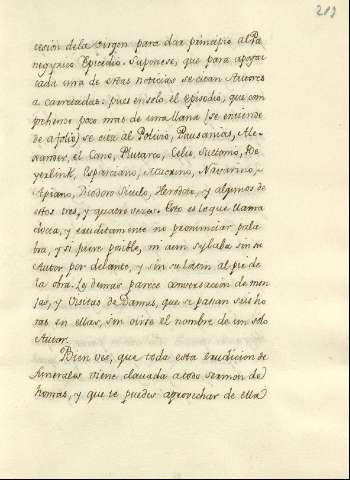 203
cesion dela virgen para dar principio al Pa
negyrico Epicedio. Suponese, que para apoyar
cada una de estas noticias se citan Autores
a carretadas: pues en solo el Episodio, que com
prehende poco mas de una llana (se entiende
de a folio) se cita al Polivio, Pausanias, Ale
xandro, el Cano, Plutarco, Celio, Suetonio,
Esparciano, Navarino,
Apiano, Diodoro Siculo, Herodoto, y algunos de
estos tres, y quatro vezes. Esto es lo que llama
docta, y eruditamente no pronunciar pala
bra, y si fuere posible, ni aun sylaba sin su
Autor por delante, y sin su latin al pie de
la obra. Lo demas parece conversacion de men
jas, y Visitas de Damas, que se pasan seis ho
ras en ellas, sin oirse el nombre de un solo
Autor.
Bien ves, que toda esta erudicion de
funerales viene clavada a todo sermon de
honras, y que te puedes aprovechar de ella